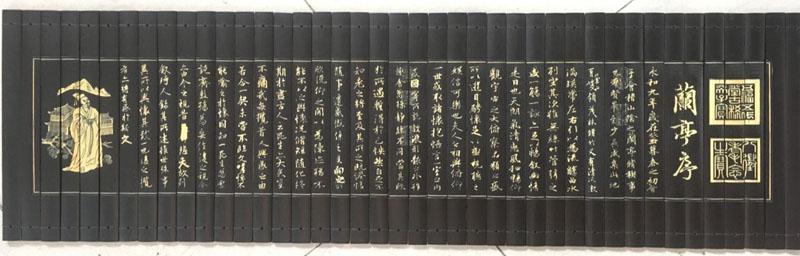 蘭亭序
永和九年歲在癸丑暮春之初會
于會稽山陰之蘭亭脩禊事
也羣賢畢至少長咸集此地
有崇山峻領茂林脩竹又有清流激
湍暎帶左右引以為流觴曲水
列坐其次雖無絲竹管弦之
盛一觴一詠亦足以暢敘幽情
是日也天朗氣清惠風和暢仰
觀宇宙之大俯察品類之盛
所以遊目騁懷足以極視聽之
娛信可樂也夫人之相與俯仰
一世或取諸懷抱悟言一室之內
或因寄所託放浪形骸之外雖
趣舍萬殊靜躁不同當其欣
於所遇暫得於己快然自足不
知老之將至及其所之既惓情
隨事遷感慨係之矣向之所
欣俛仰之間以為陳迹猶不
能不以之興懷況脩短隨化終
期於盡古人云死生亦大矣豈
不痛哉每攬昔人興感之由
若合一契未嘗不臨文嗟悼不
能喻之於懷固知一死生為虛
誕齊彭殤為妄作後之視今
亦由今之視昔悲夫故列
敘時人錄其所述雖世殊事
異所以興懷其致一也後之攬
者亦將有感於斯文